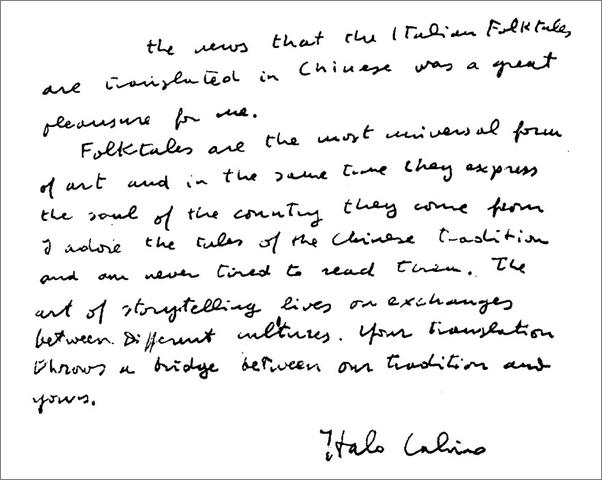 the news that the Italian Folktales
are translated in Chinese was a great
pleausure for me.
Folktales are the most universal form
of art and in the same time they express
the soul of the country they come from
I adore the tales of the Chinese tradition
and am never tired to read them. The
art of storytelling lives on exchanges
between different cultures. Your translation
throws a bridge between our tradition and
yours.
Italo Calvino